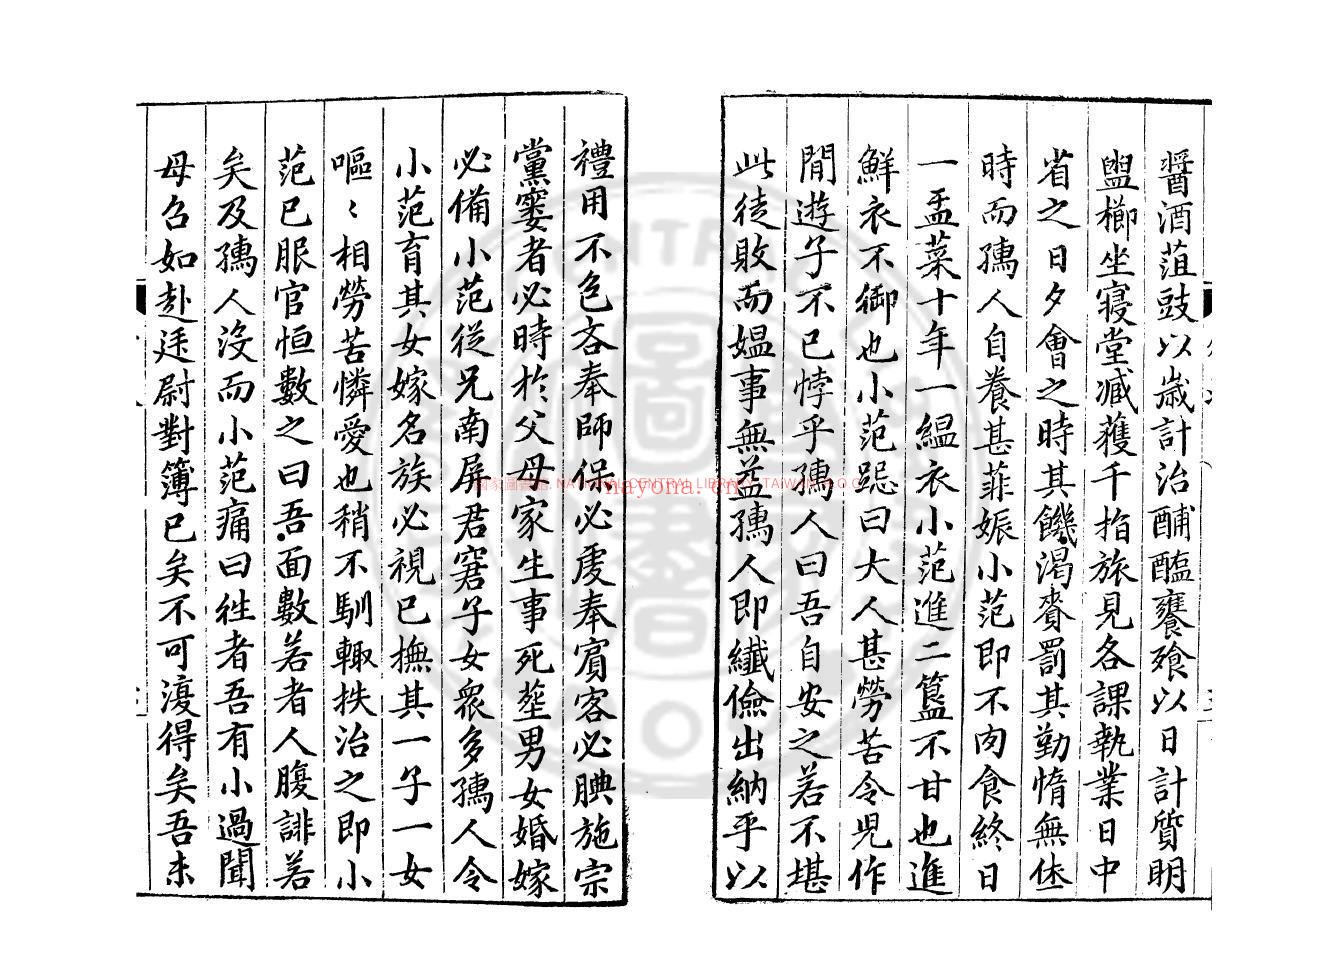 醬酒葅豉以歲計治酺醢饔飱以日計質明
盥櫛坐寢堂臧獲千指旅見各課執業日中
省之日夕會之時其饑渴賚罰其勤惰無倦
時而孺人自養甚菲娠小范即不肉食終日
一盂菜十年一緼衣小范進二簋不甘也進
鮮衣不御也小范跽曰大人甚勞苦令兒作
閒遊子不已悖乎孺人曰吾自安之若不堪
此徒敗而媼事無益孺人即纖儉出納乎以
禮用不色吝奉師保必虔奉賓客必腆施宗
黨窶者必時於父母家生事死塟男女婚嫁
必備小范從兄南屏君窘子女眾多孺人令
小范育其女嫁名族必視已撫其一子一女
嘔〻相勞苦憐愛也稍不馴輙抶治之即小
范已服官恒數之曰吾面數若者人腹誹若
矣及孺人沒而小范痛曰徃者吾有小過聞
母召如赴廷尉對簿已矣不可復得矣吾未
國家圖書館 NATIONAL CENTRAL LIBRARY, TAIWAN, R.O.C.
nayona.cn